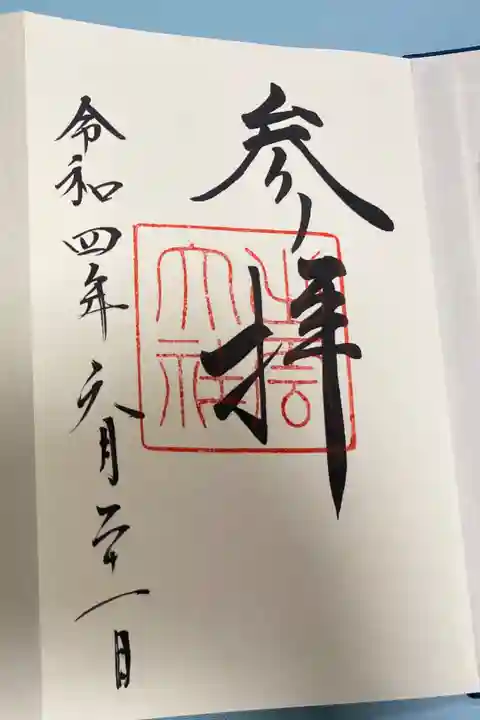 参拝
大神
令和四年六月二十一日